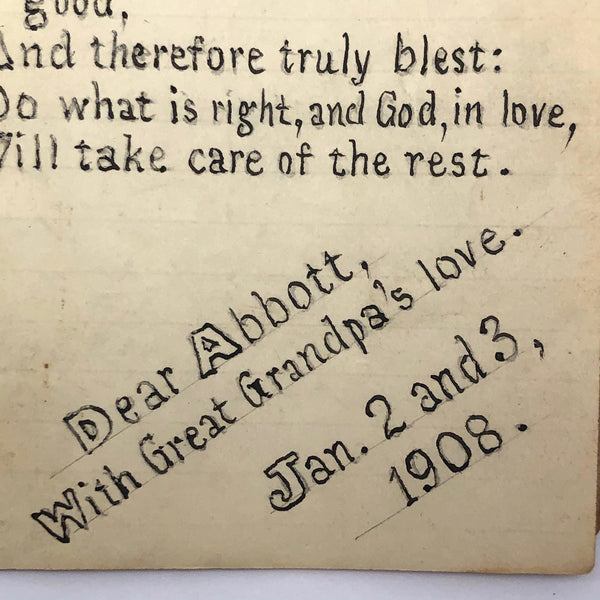 good,
And therefore truly blest:
Do what is right, and God, in love,
Will take care of the rest.
Dear Abbott,
With Great Grandpa's love.
Jan. 2 and 3,
1908.